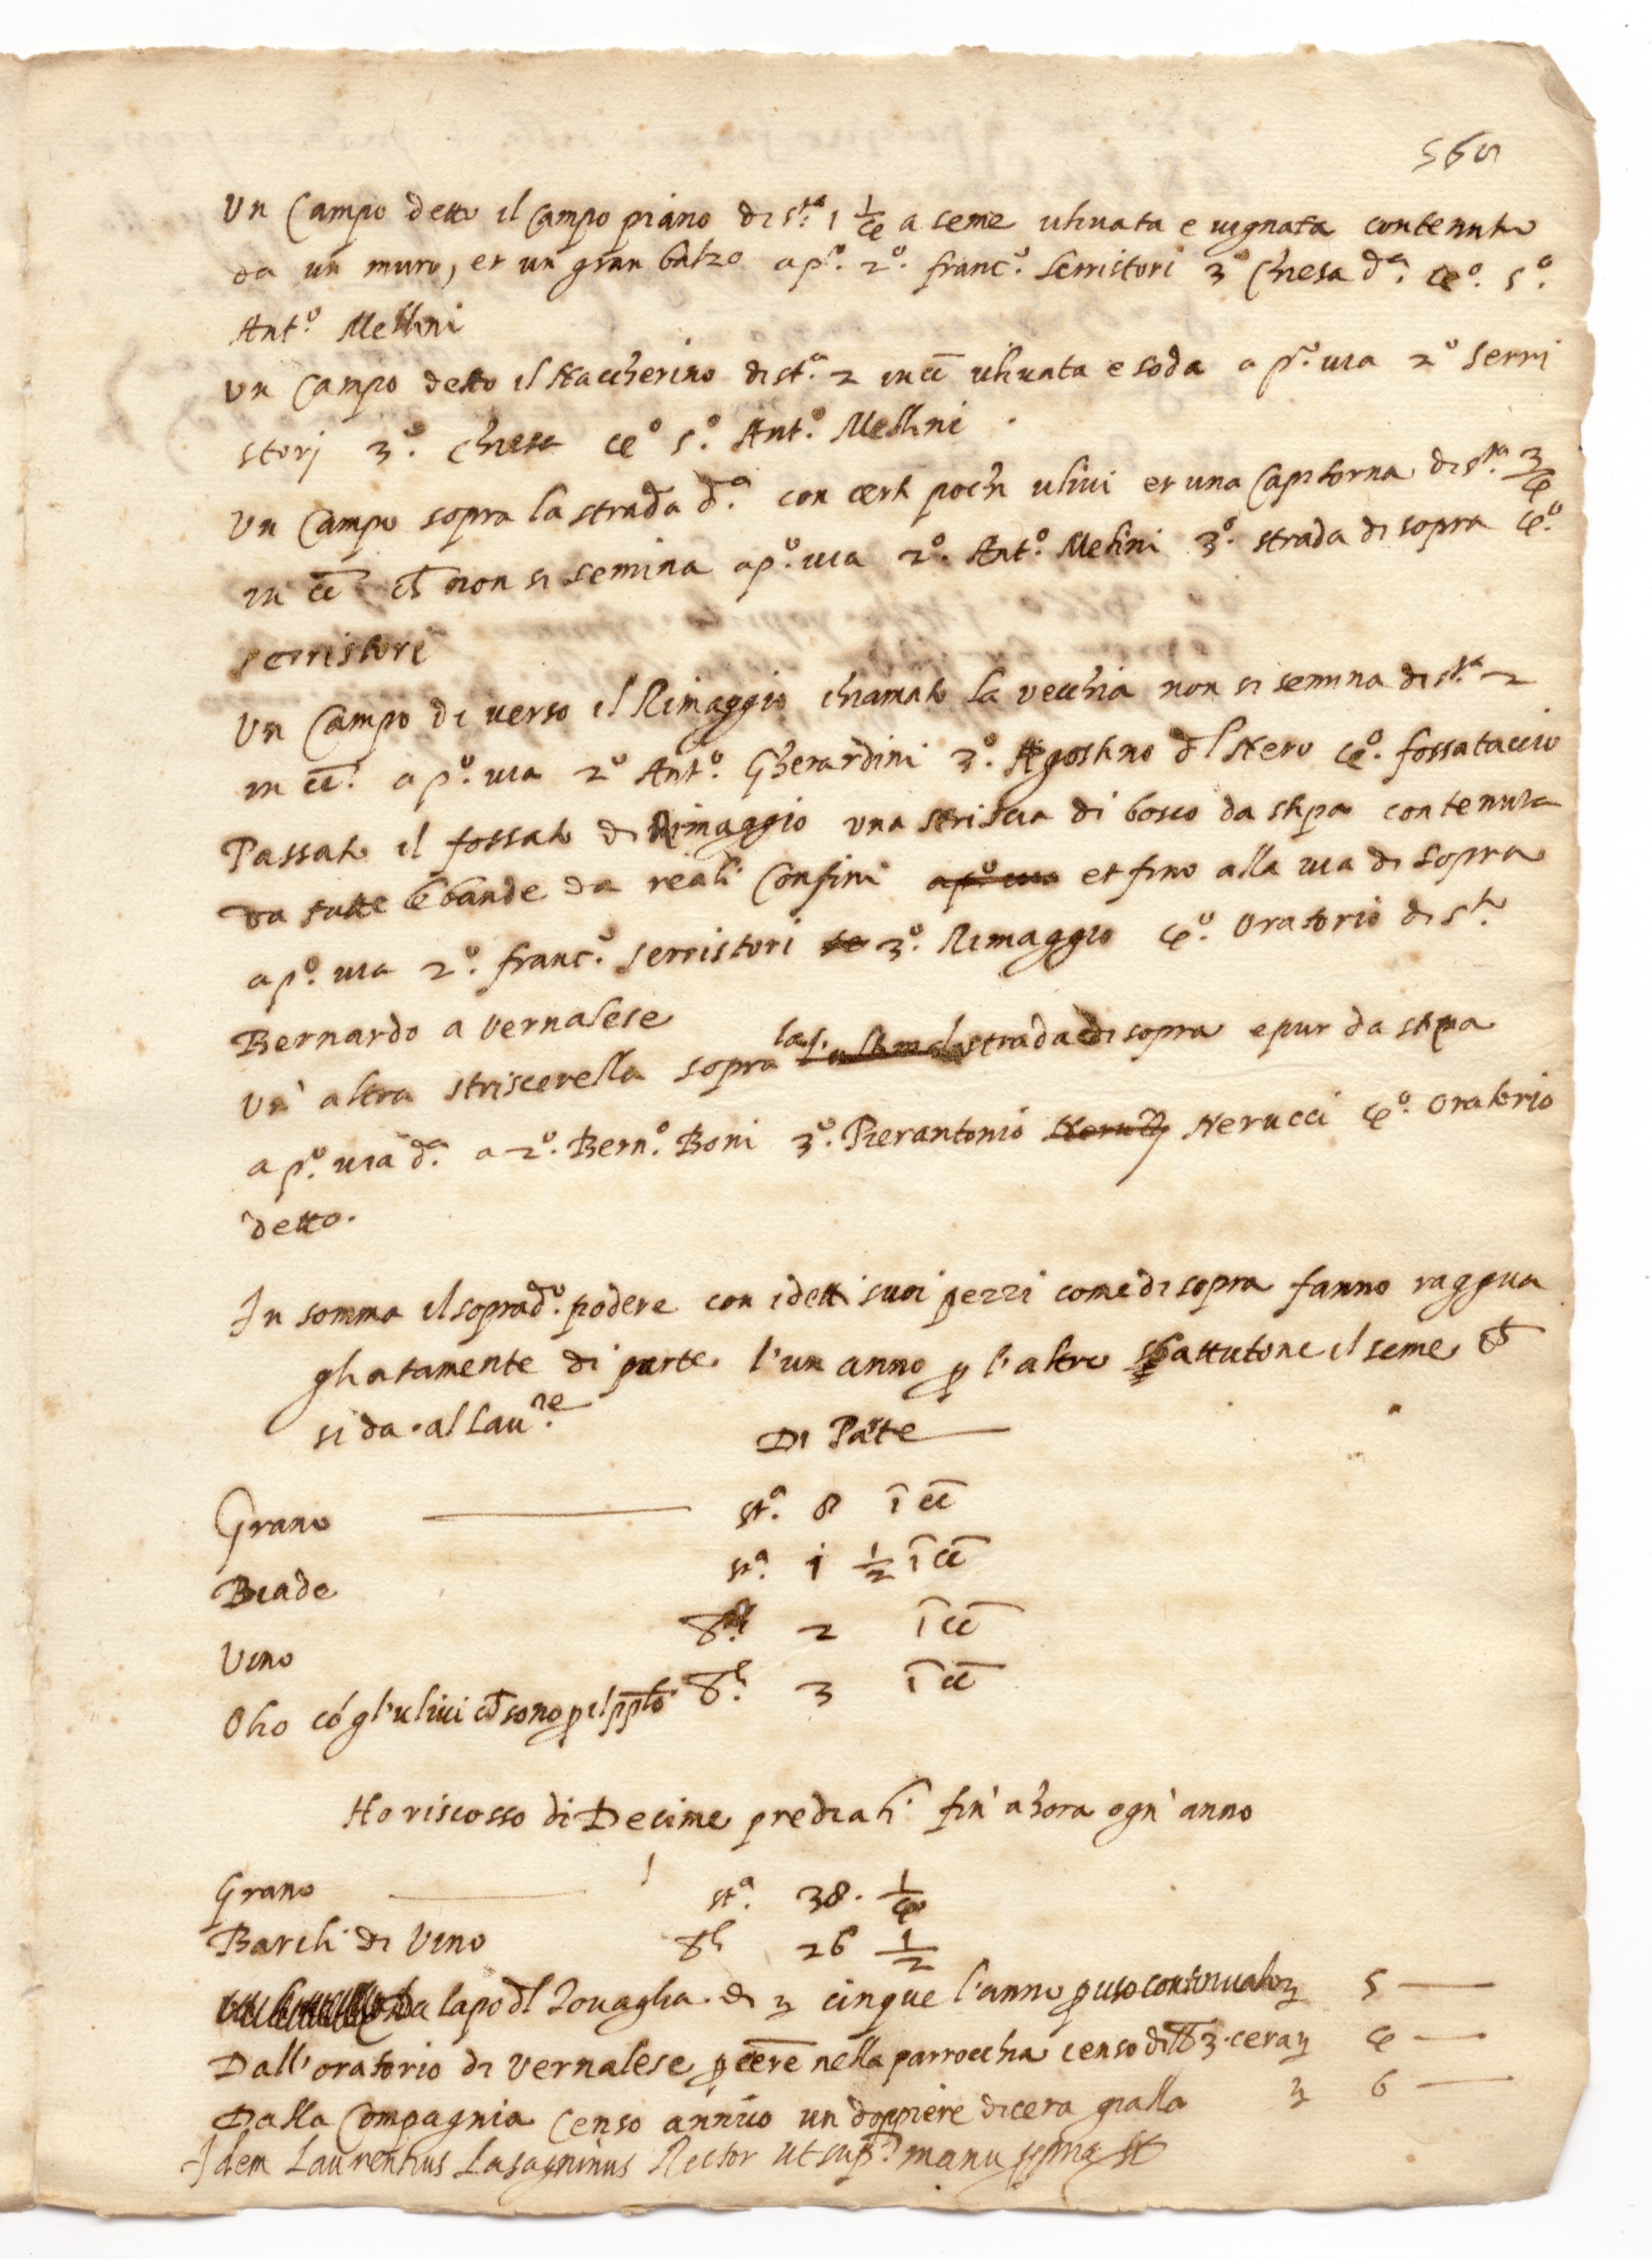 565
Un Campo detto il Campo piano di st.ª 1 1/4 a seme ulivata e vignata contenuto
da un muro, et un gran balzo a p.º 2.º franc.º Serristori 3º Chiesa d.ª 4º. 5.º
Ant.º Mellini
Un Campo detto il Naccherino di st.ª 2 in cc.ª ulivata e soda a p.º via 2º Serri
stori 3.º Chiesa 4º 5.º Ant.º Mellini
Un Campo sopra la strada d.ª con certi pochi ulivi et una Capitorna di st.ª 3/4
in cc.ª ch non si semina a p.º via 2.º Ant.º Melini 3.º strada di sopra 4.º
Serristori
Un Campo di verso il Rimaggio chiamato la vecchia non si semina di st.ª 2
in cc.ª a p.º via 2º Ant.º Gherardini 3.º Agostino dl Nero 4º. fossataccio
Passato il fossato di Rimaggio una striscia di bosco da stipa contenuta
da tutte le bande da reali Confini a p.º via et fino alla via di sopra
a p.º via 2.º franc.º Serristori 3.º Rimaggio 4.º Oratorio di s.to
Bernardo a Vernalese
Un' altra striscerella sopra la strada di sopra e pur da stipa
a p.º via d.ª a 2.º Bern.º Boni 3.º Pierantonio Nerucci Nerucci 4º. Oratorio
detto.
In somma il soprad.º podere con i detti suoi pezzi come di sopra fanno raggua
gliatamente di parte l'un anno p l'altro sbattutone il seme ch
si da al Lau.re
Di Parte
Grano st.ª 8 i cc
Biade st.ª 1 1/2 i cc
Vino 2 i cc
Olio có gl'ulivi ch sono p il 3 i cc
Ho riscosso di Decime prediali fin' ahora ogn' anno
Grano st.ª 38. 1/4
Barili di Vino 26 1/2
Da lapo dl Tovaglia di cinque l'anno p uso continuato 5
Dall'oratorio di Vernalese p eēre nella parrocchia censo di lb 3. cera 4
Dalla Compagnia Censo annuo un doppiere di cera gialla 6
Idem Laurentius Lasagninus Rector ut sup.ª manu ppria